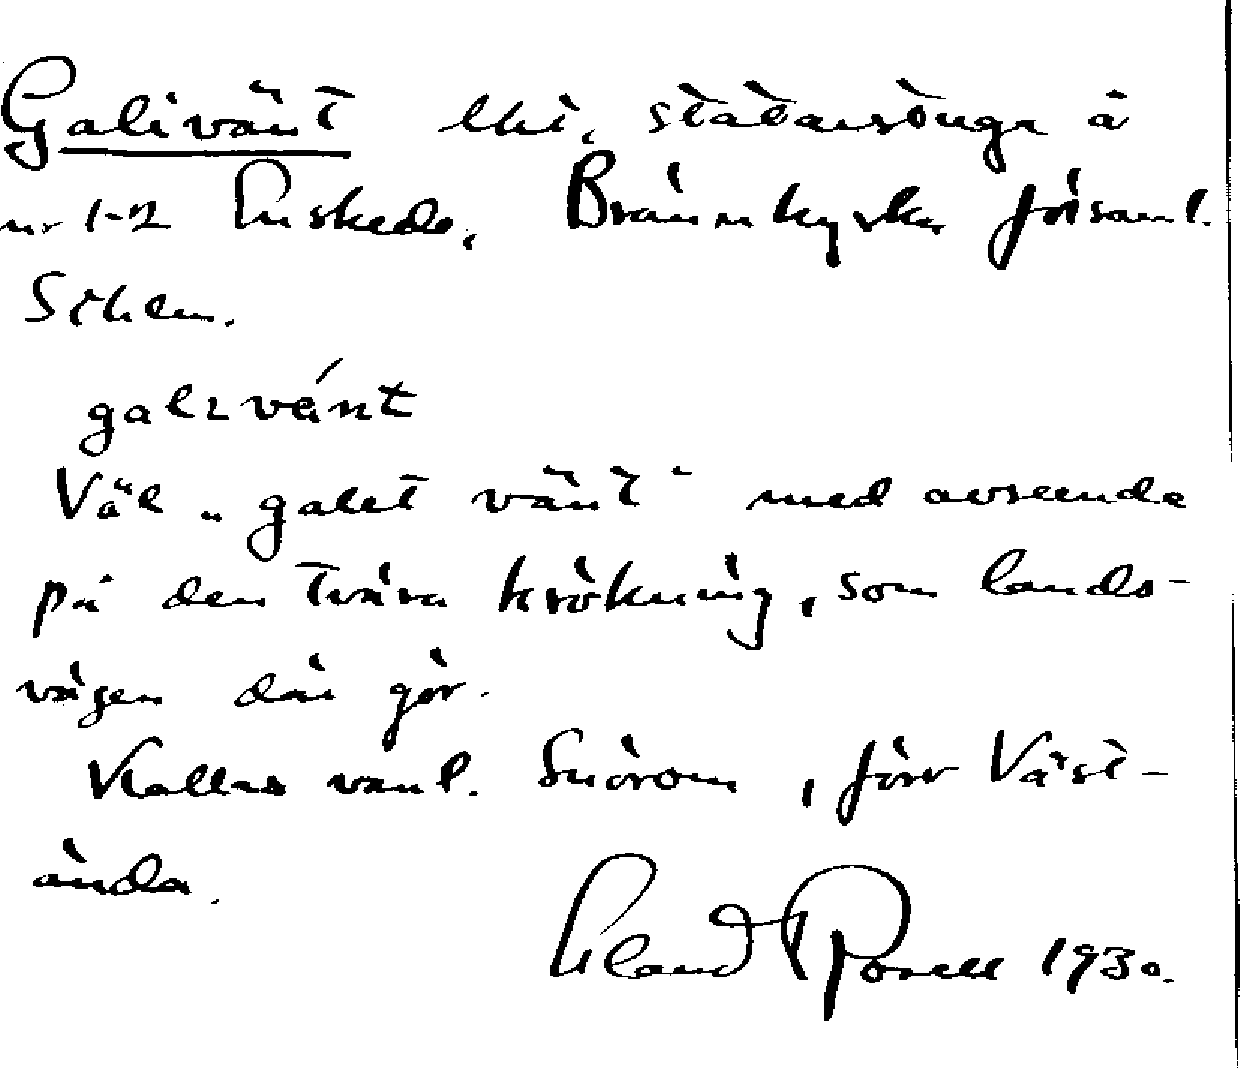 Galivänt lht, statarstuga å
nr 1-2 Enskede, Brännkyrka förssaml.
Sthlm.
galɩvént
Väl „galet vänt" med avseende
på den tvära krökning, som lands-
vägen där gör.
Kallas vanl. Snörom, förr Väst-
ända.
Erland Rosell 1930.